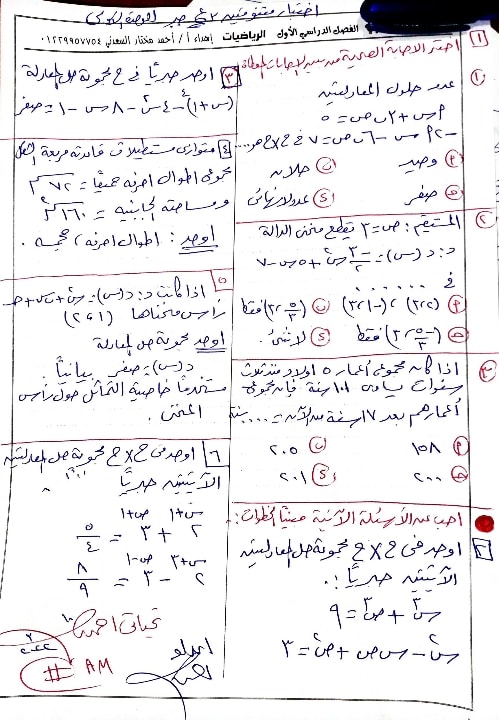 اختبار متنوعته
الفصل الدراسي الأول الرياضيات إعداد أ/ أحمد مختار السعدني ٠١٢٢٩٩٥٧٧٥٤
١ اختر الاجابة الصحيحة من بين الاجابات المعطاة
١ عدد حلول المعادلتين
٢س + ٢ص = ٥
٧ = ٦ص
٢ وحيد ب حلان
ح صفر د عدد لانهائى
٢ المستقيم : ص = ٣ يقطع منحنى الدالة
د : د(س) = س٢ + ٥س - ٧
فى ......
فقط
فقط د لا شئ
٣ اذا كان مجموع أعمار ٥ اولاد منذ ثلاث
سنوات يساوى ١٠١ سنة فإن مجموع
أعمارهم بعد ١٧ سنة من الآن = ...... سنة
٢ ١٥٨ ب ٢٠٥
ح ٢٠٠ د ٢٠١
اجب عن الأسئلة الآتية مبيناً الخطوات :
٢ اوجد فى ح × ح مجموعة حل المعادلتين
الآتيتين جبرياً :
س٣ + ص٣ = ٩
س٢ - س ص + ص٢ = ٣
٣ اوجد جبرياً فى ح مجموعة حل المعادلة
(س + ١)٤ - ٤س٢ - ٨س - ١ = صفر
٤ متوازى مستطيلات قاعدته مربعة الشكل
مجموع اطوال احرفه جميعاً = ٧٢ سم
ومساحته الجانبية = ١٦٠ سم٢
اوجد : اطوال احرفه ، حجمه .
٥ اذا كانت د : د(س) = س٢ + ب س + حـ
رأس منحناها (٢، ١)
اوجد مجموعة حل المعادلة
د(س) = صفر بيانياً
مستخدماً خاصية التماثل حول رأس
المنحنى .
٦ اوجد فى ح × ح مجموعة حل المعادلتين
الآتيتين جبرياً
٢ س+١ + ٣ ص+١ = ٥/٤
٢ س+٣ - ٣ ص-١ = ٨/٩
تحياتى احمد
# AM